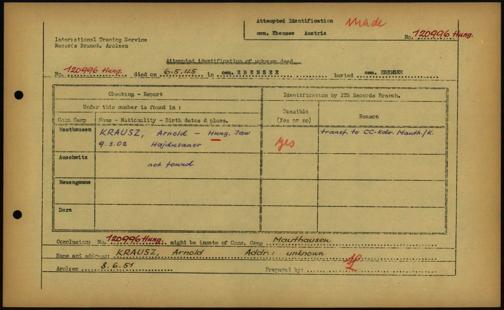 Attempted Identification made
cem. Ebensee Austria
International Tracing Service
Records Branch, Arolsen
No. 120996 Hung.
Attempted identification of unknown dead
No. 120996 Hung. died on 6-5.45 in cem. EBENSEE buried cem. EBENSEE
Checking - Report
Identification by ITS Records Branch.
Under this number is found in :
Possible
(Yes or no)
Reason
Conc Camp
Name - Nationality - Birth dates & place.
Mauthausen
KRAUSZ, Arnold - Hung. Jew
9.3.02
yes
transf. to CC-Kdo. Mauth./K.
Auschwitz
not found
Neuengamme
Dora
Conclusion: No. 120996 Hung. might be inmate of Conc. Camp Mauthausen
Name and address: KRAUSZ, Arnold Addr.: unknown
Arolsen 8.6.51 Prepared by: